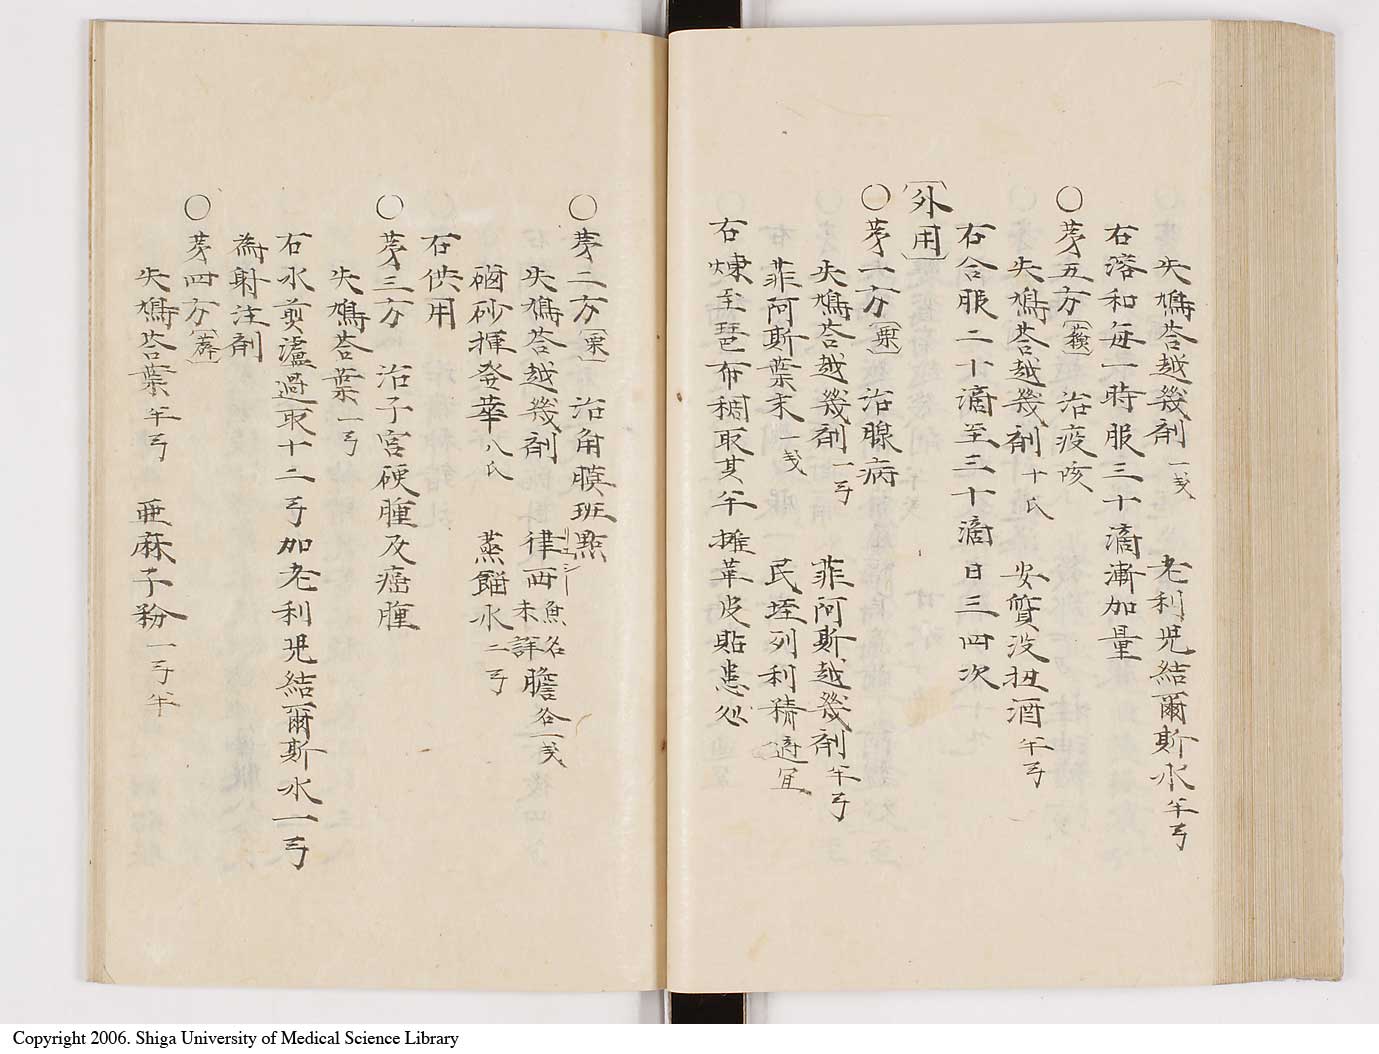 失鳩荅越幾剤 一戔 老利児結爾斯水 半弓
右溶和毎一時服三十滴漸加量
○苐五方 治疫咳
失鳩荅越幾剤 十氏 安質没扭酒 半弓
右合服二十滴至三十滴日三四次
〔外用〕
○苐一方〔栗〕 治腺病
失鳩荅越幾剤 一弓 菲阿斯越幾剤 半弓
菲阿斯葉末 一戔 民垤列利精 適宜
右煉至琶布稠取其半攤革皮貼患処
○苐二方〔栗〕 治角膜班點
失鳩荅越幾剤 律西 魚名未詳 膽 各一戔
磠砂揮発華 八氏 蒸餾水 二弓
右供用
○苐三方 治子宮硬腫及癌腫
失鳩荅葉 一弓
右水煎濾過取十二弓加老利児結爾斯水一弓
為射注剤
○苐四方
失鳩荅葉 半弓 亜麻子粉 一弓半
Copyright 2006. Shiga University of Medical Science Library